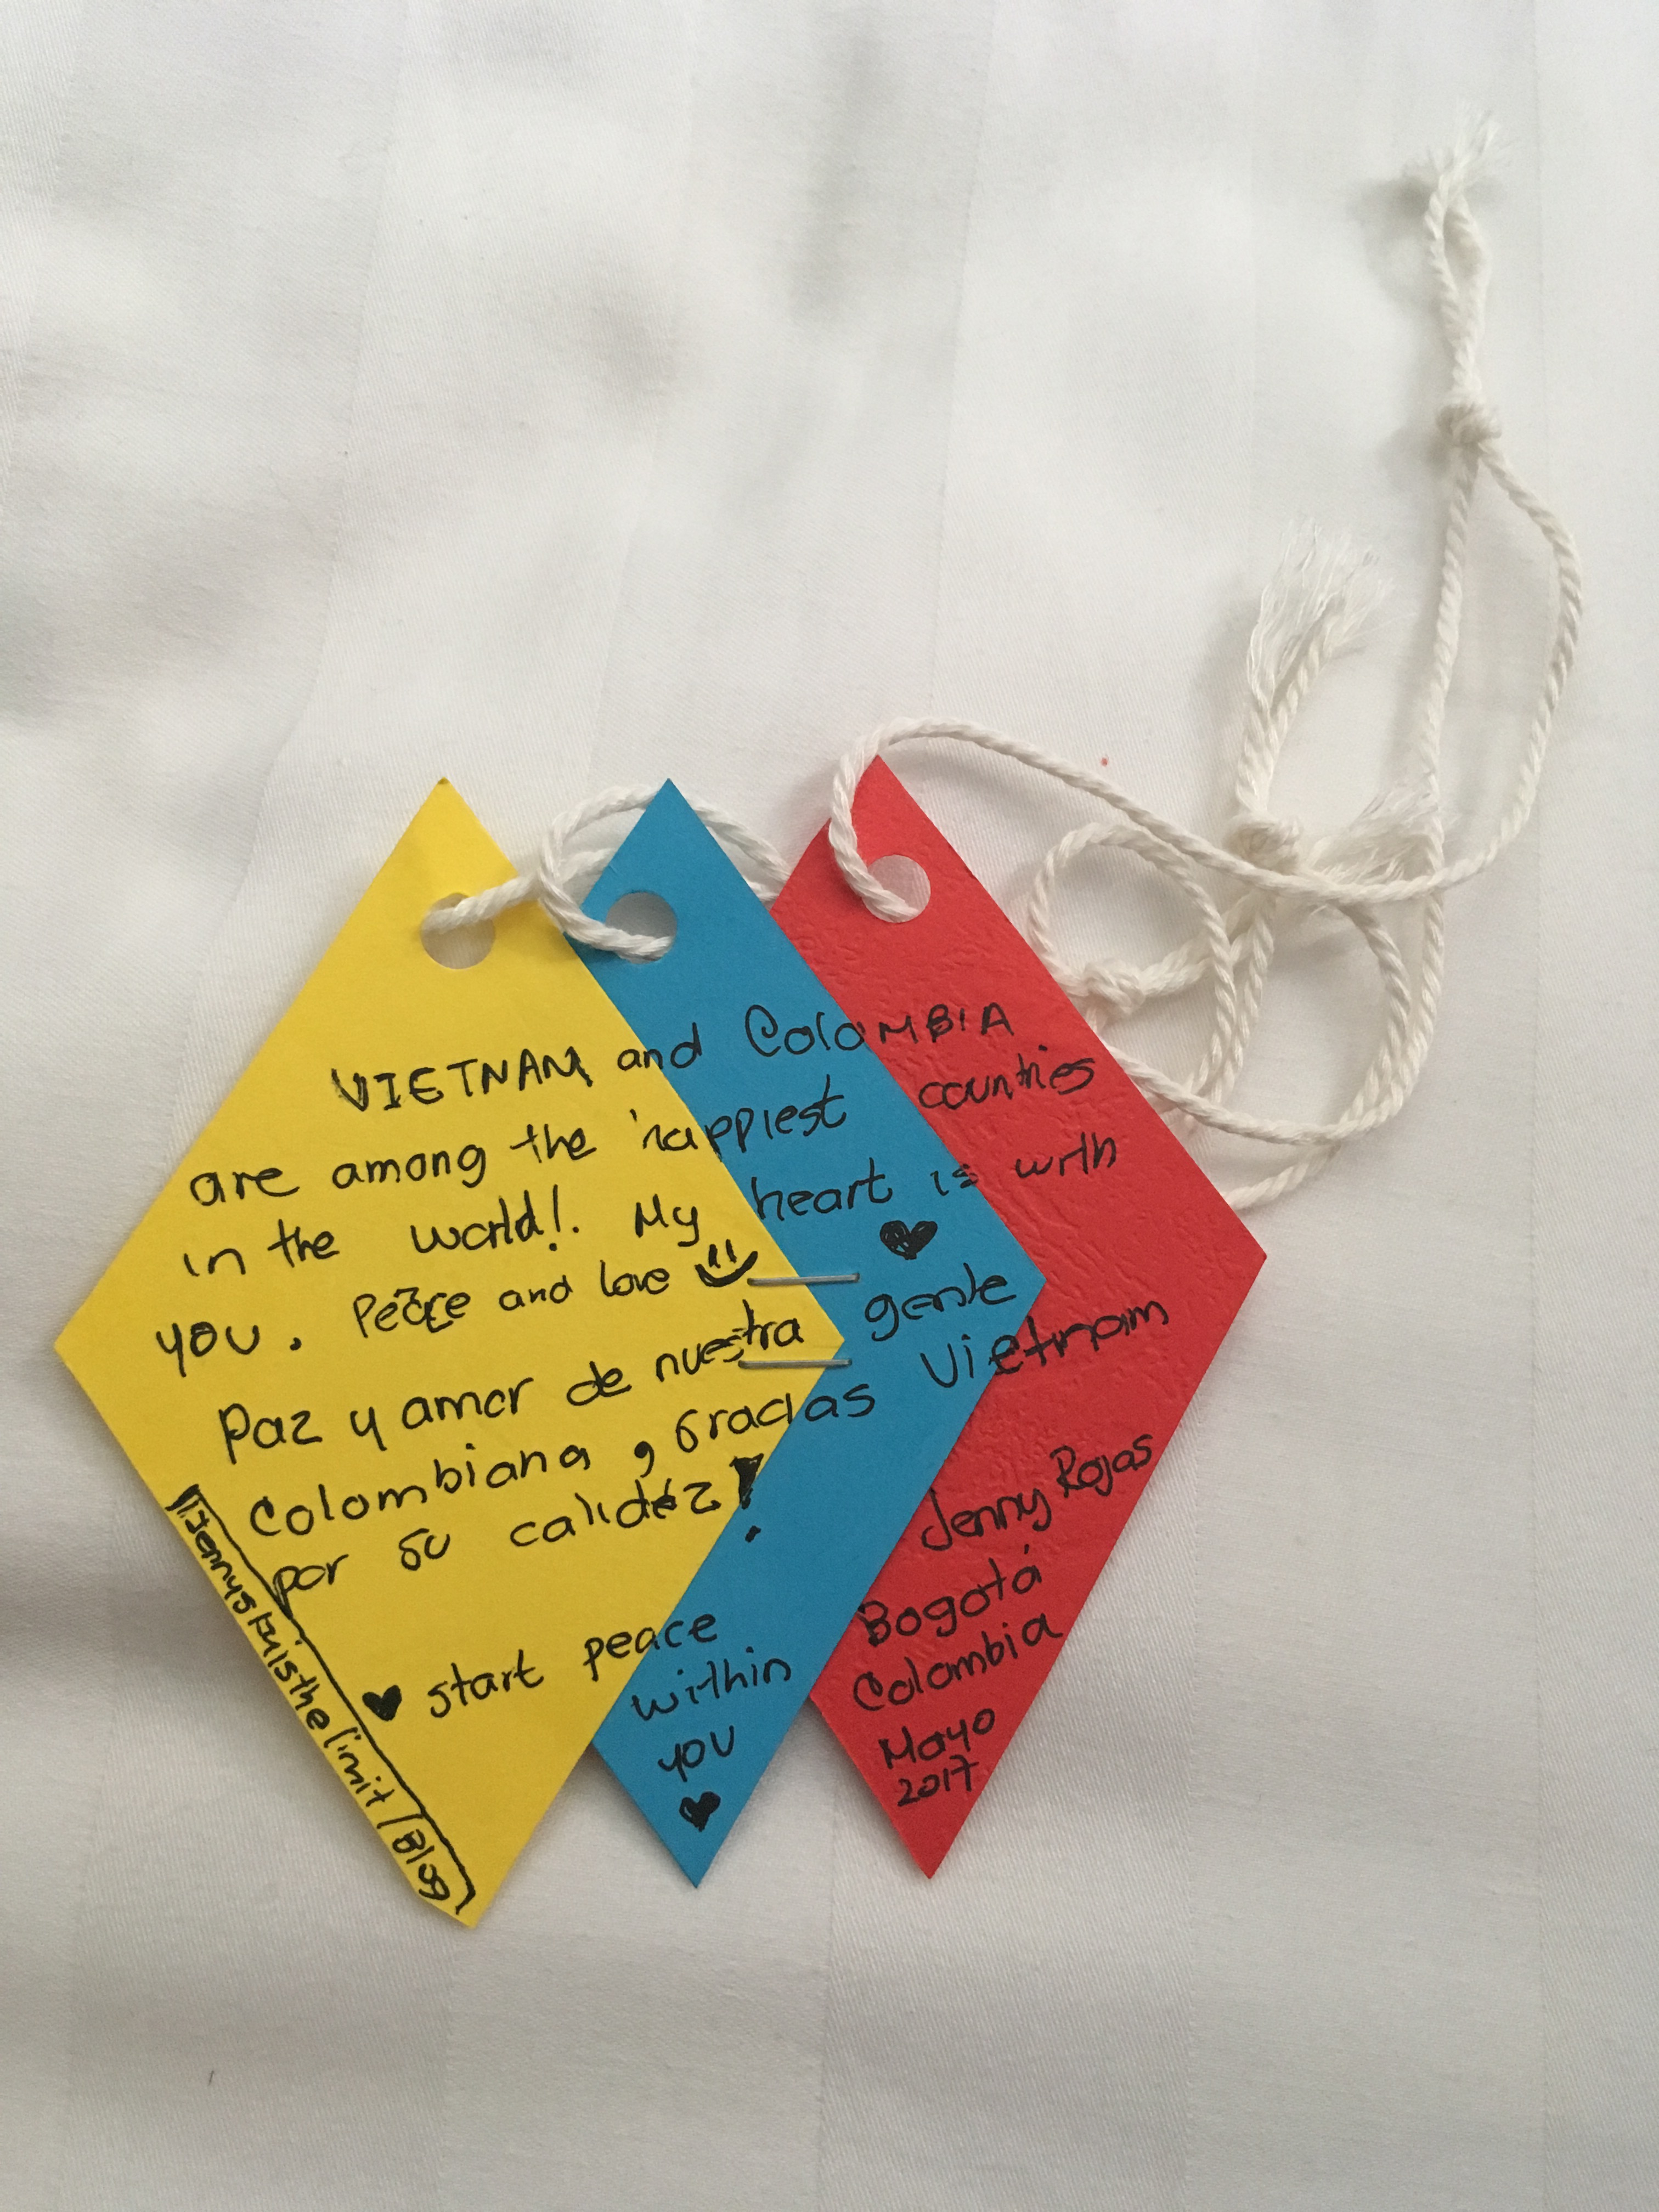 VIETNAM and ColoMBIA
are among the happiest countries
in the world!. My heart is with
you. Peace and love
Paz y amor de nuestra gente
Colombiana, Gracias Vietnam
por su calidéz!
start peace
within
you
Jenny Rojas
Bogotá
Colombia
Mayo
2017
thelimit/Blog